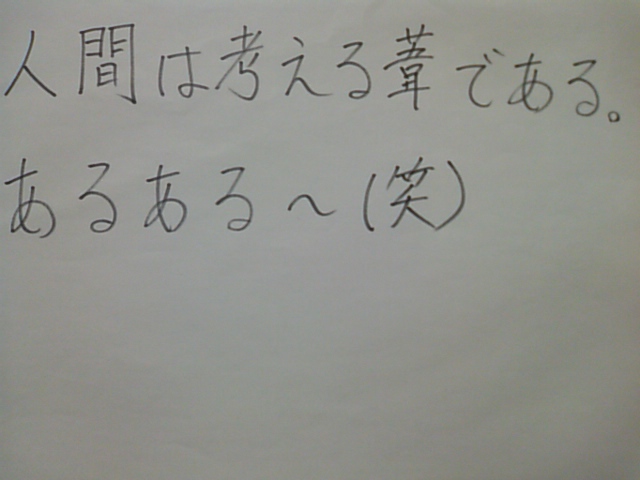 人間は考える葦である。
あるある～(笑)